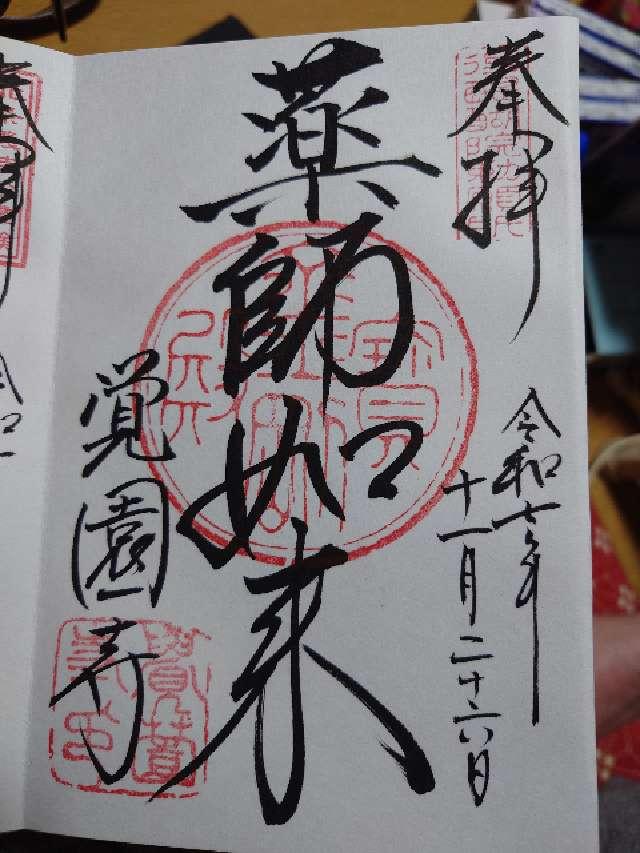 奉拝
令和七年
十一月二十六日
薬師如来
覚園寺